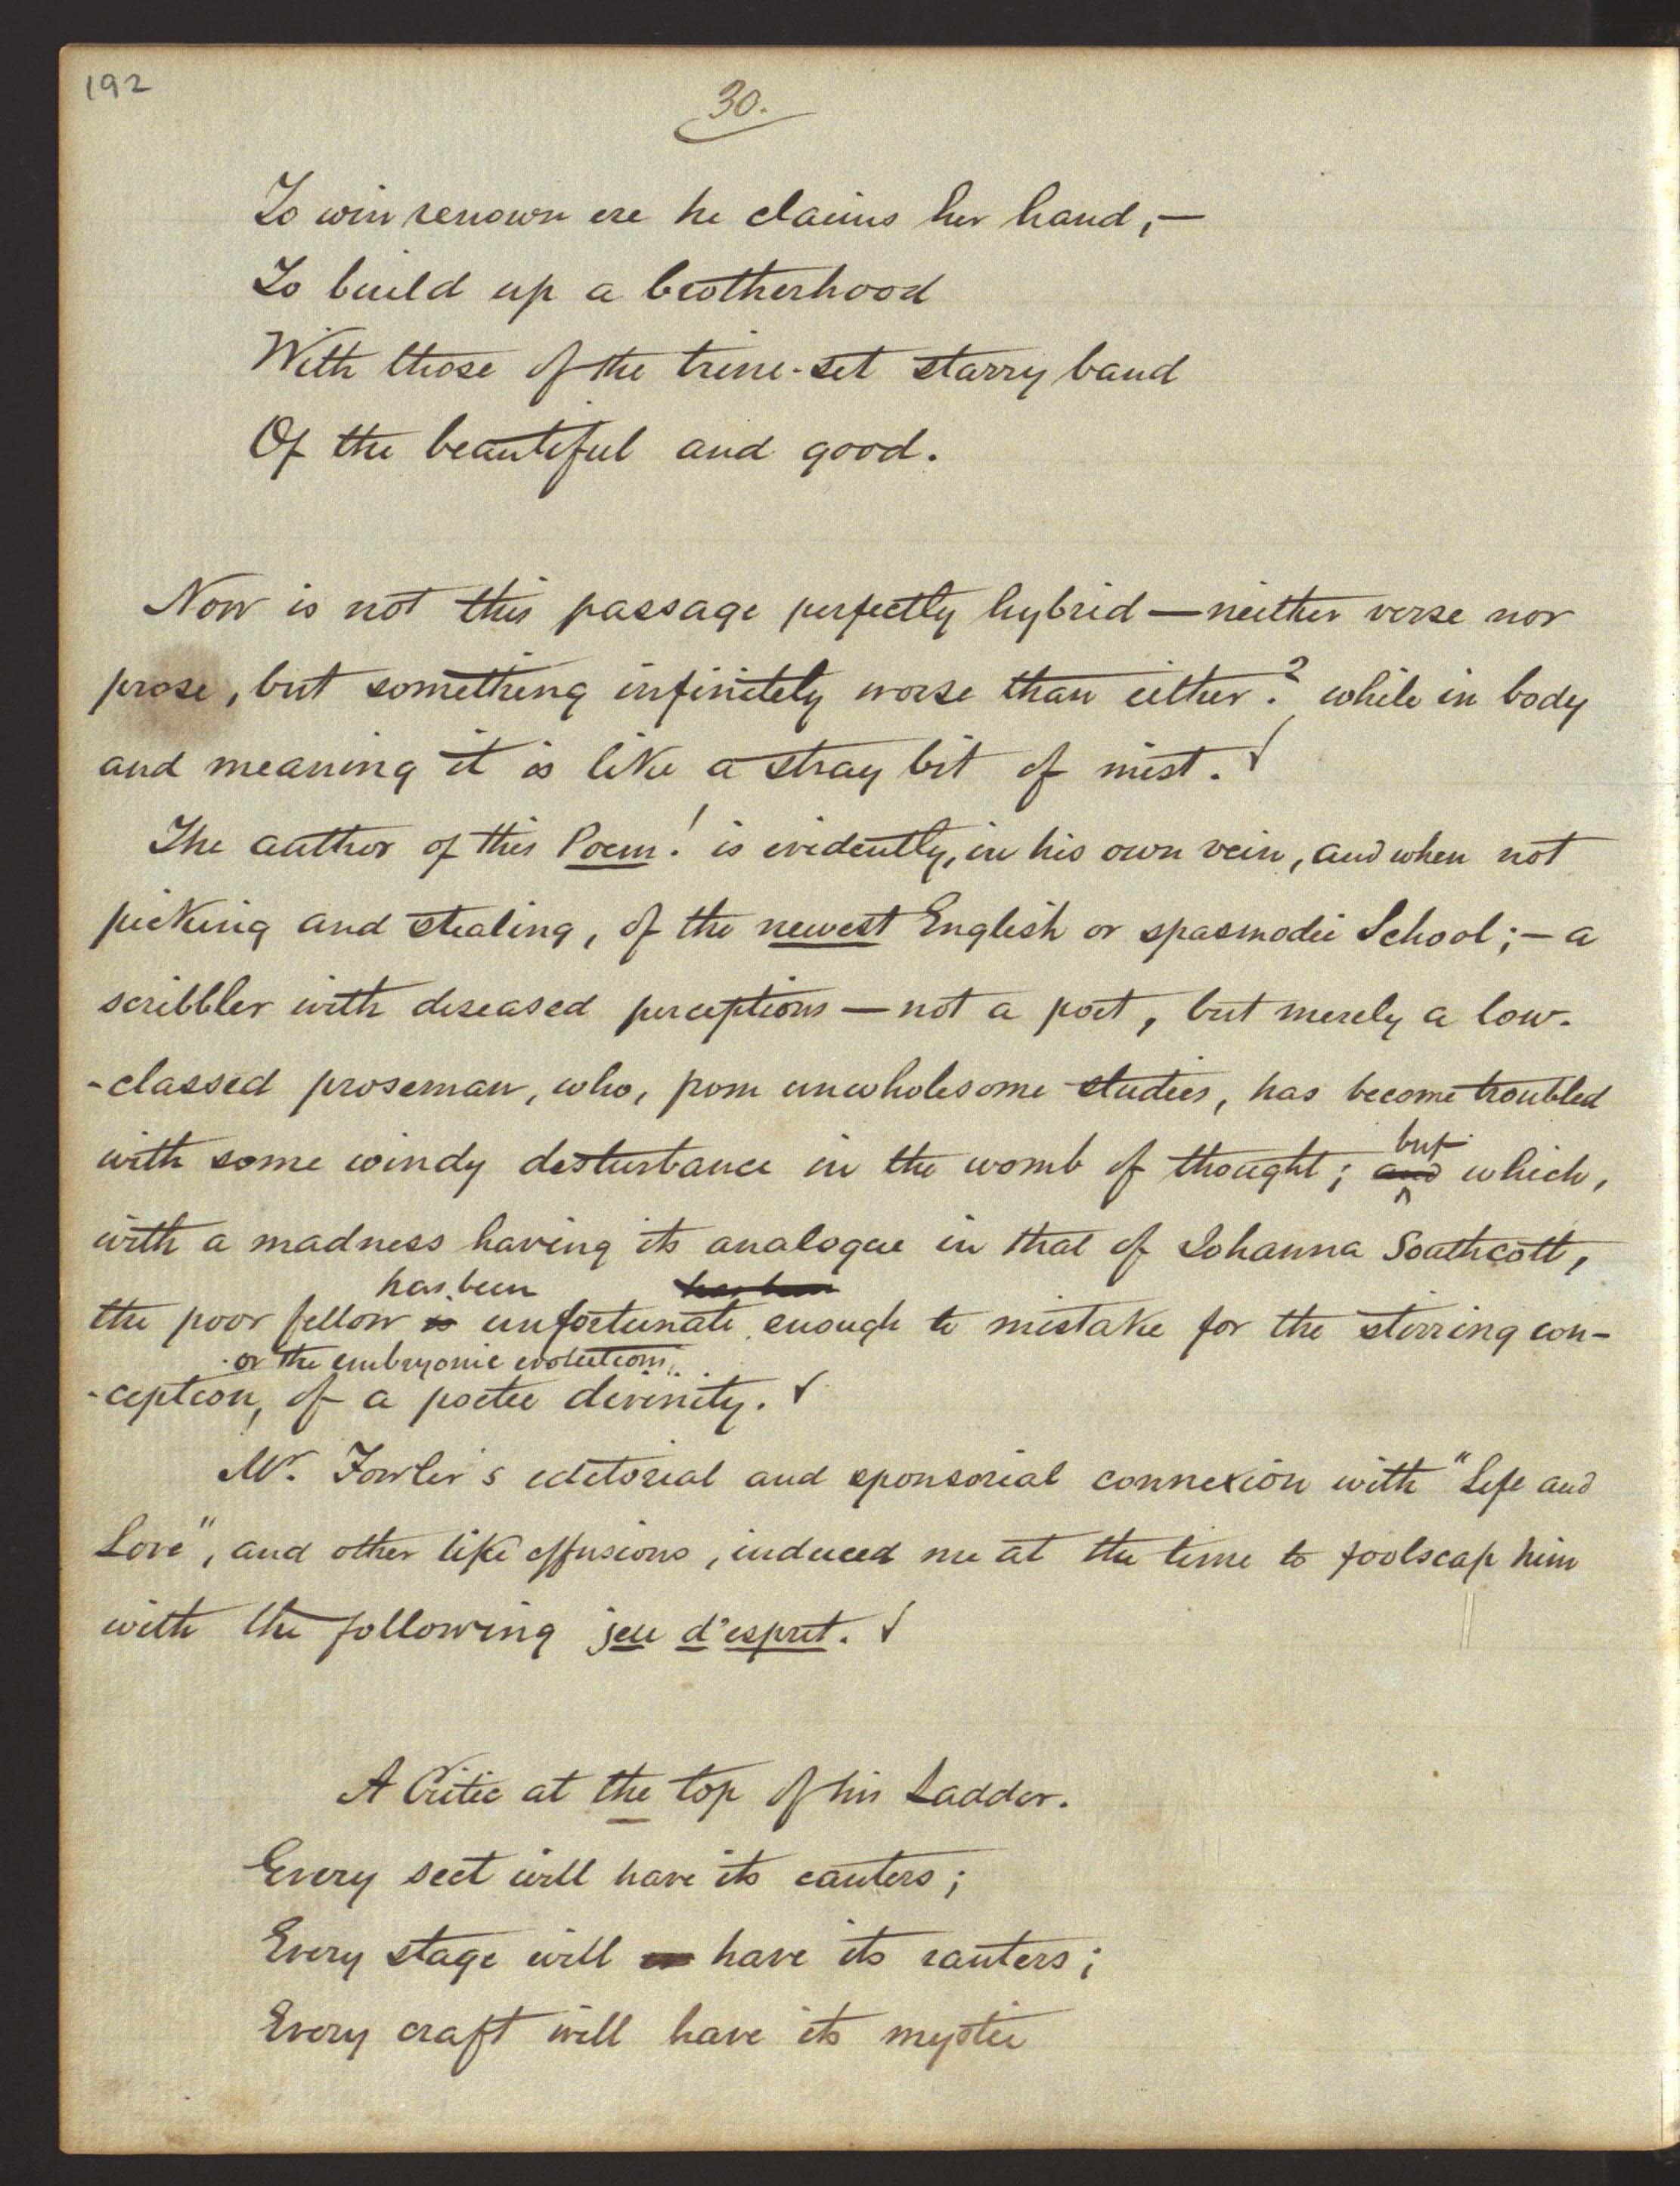 192
30.
To win renown ere he claims her hand,—
To build up a brotherhood
With those of the trine-set starry band
Of the beautiful and good.
Now is not this passage perfectly hybrid — neither verse nor
prose, but something infinitely worse than either? while in body
and meaning it is like a stray bit of mist.
The author of this Poem! is evidently, in his own vein, and when not
picking and stealing, of the newest English or spasmodic School; — a
scribbler with diseased perceptions — not a poet, but merely a low-
-classed proseman, who, from unwholesome studies, has become troubled
but
with some windy disturbance in the womb of thought; and which,
with a madness having its analogue in that of Johanna Southcott,
has been has been
the poor fellow is unfortunate enough to mistake for the stirring con-
or the embryonic evolutions,
-ception, of a poetic divinity.
Mr. Fowler's editorial and sponsorial connexion with "Life and
Love", and other like effusions, induced me at the time to foolscap him
with the following jeu d'esprit.
A Critic at the top of his Ladder.
Every sect will have its canters;
Every stage will have its ranters;
Every craft will have its mystic